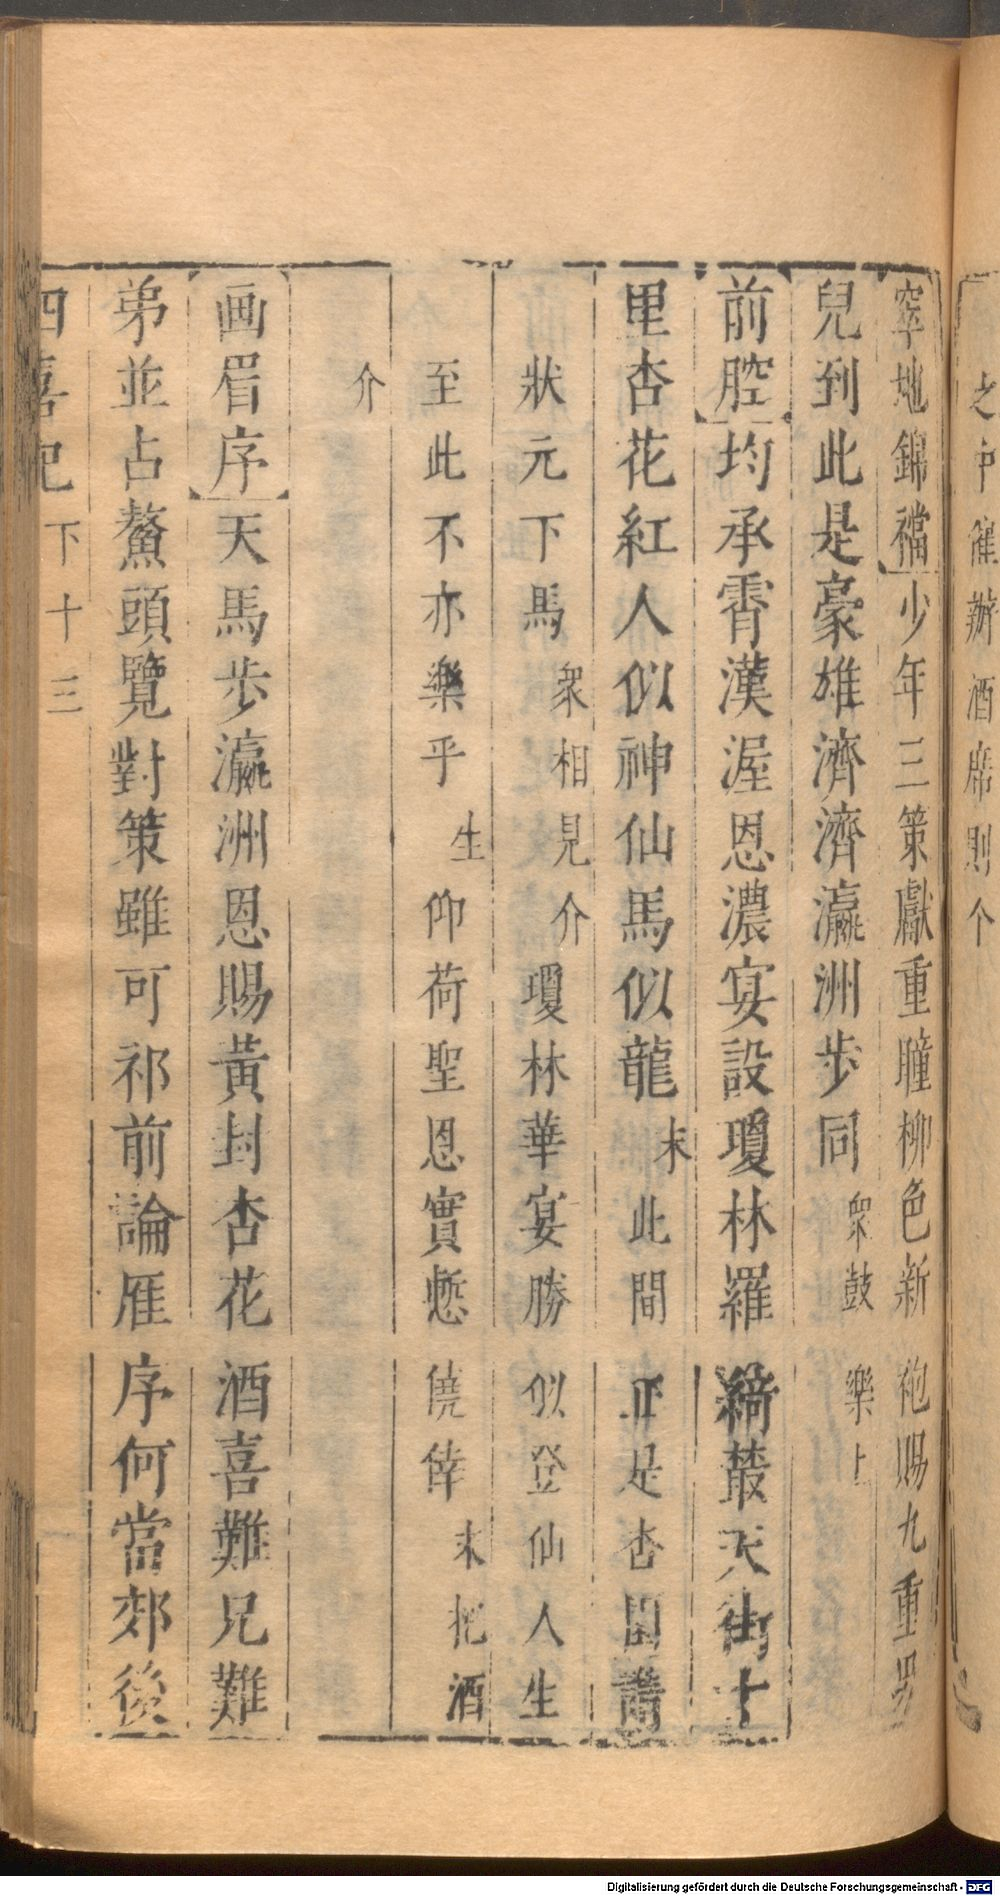 之中催辦酒席則个
窣地錦襠少年三策獻重瞳柳色新袍賜九重男
兒到此是豪雄濟濟瀛洲步同眾鼓樂上
前腔均承霄漢渥恩濃宴設瓊林羅綺叢天街十
里杏花紅人似神仙馬似龍末此間正是杏園請
狀元下馬眾相見介瓊林華宴勝似登仙人生
至此不亦樂乎生仰荷聖恩實慙僥倖末把酒
介
画眉序天馬步瀛洲恩賜黃封杏花酒喜難兄難
弟並占鰲頭覽對策雖可祁前論雁序何當郊後
四喜記下十三
Digitalisierung gefördert durch die Deutsche Forschungsgemeinschaft - DFG